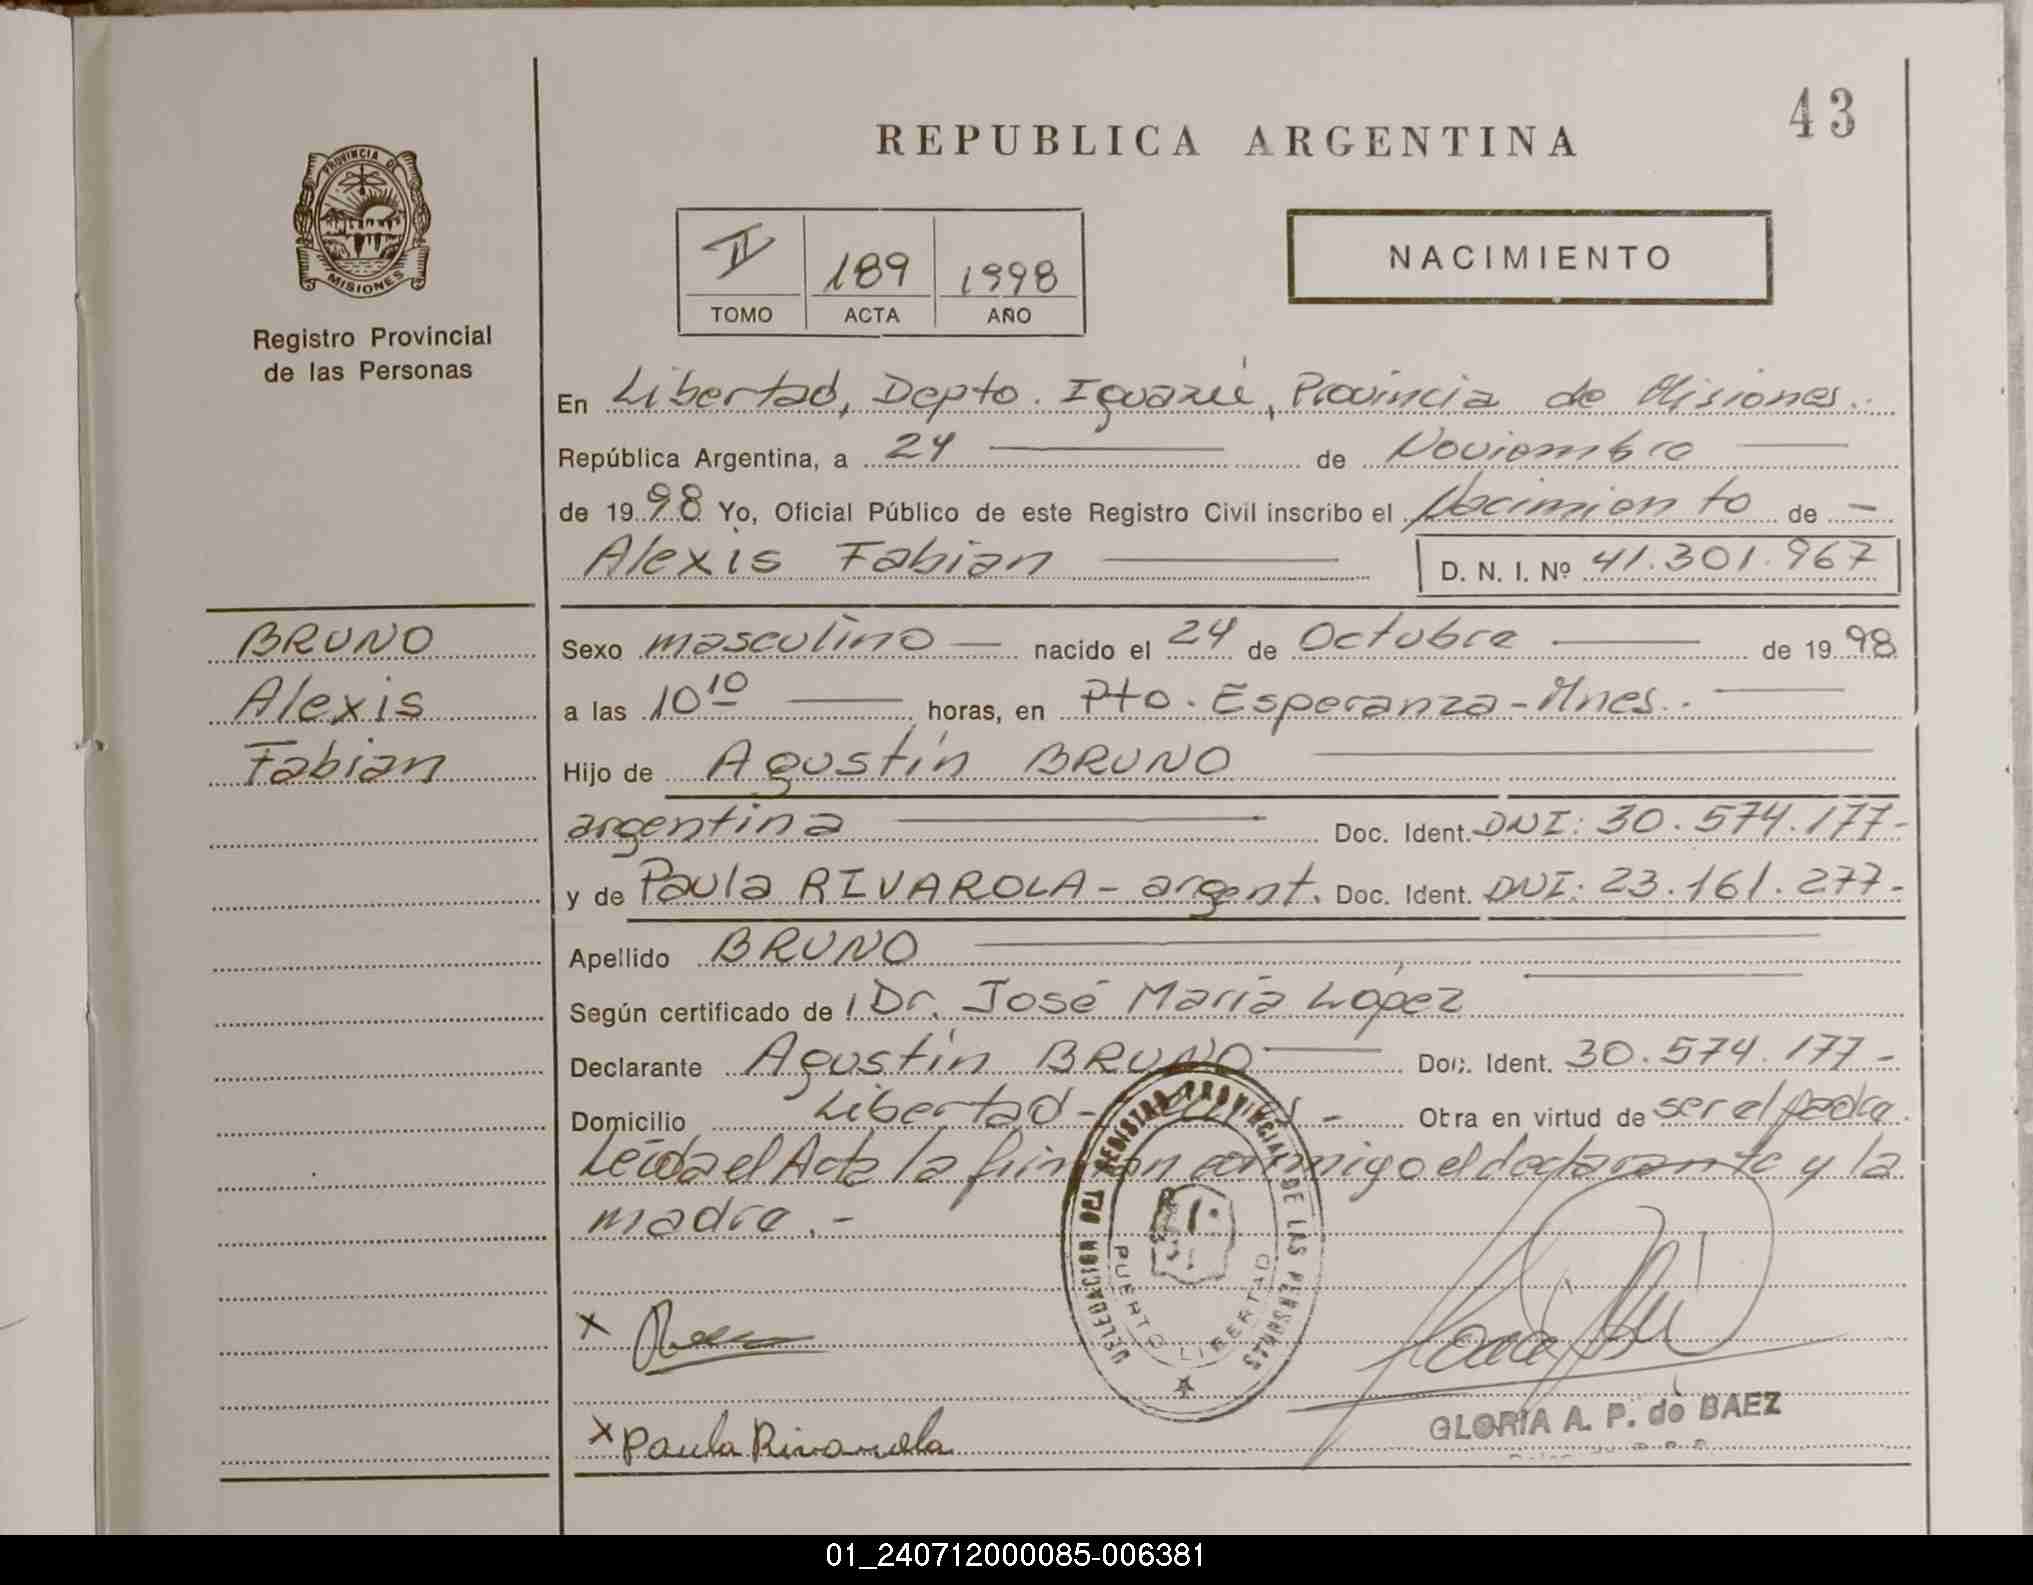 43
REPUBLICA ARGENTINA
PROVINCIA DE
MISIONES
Registro Provincial
de las Personas
II 189 1998
TOMO ACTA AÑO
NACIMIENTO
En Libertad, Depto. Iguazú, Provincia de Misiones.
República Argentina, a 24 de Noviembre
de 1998 Yo, Oficial Público de este Registro Civil inscribo el Nacimiento de -
Alexis Fabian D. N. I. Nº 41.301.967
BRUNO
Alexis
Fabian
Sexo masculino nacido el 24 de Octubre de 1998
a las 10 10 horas, en Pto. Esperanza-Mnes.
Hijo de Agustín BRUNO
argentina Doc. Ident. DNI: 30.574.177-
y de Paula RIVAROLA - argent. Doc. Ident. DNI: 23.161.277-
Apellido BRUNO
Según certificado de Dr. José María López
Declarante Agustín BRUNO Doc. Ident. 30.574.177-
Domicilio Libertad - Obra en virtud de ser el padre.
Leída el Acta la firman conmigo el declarante y la
madre.-
DELEGACION DEL REGISTRO PROVINCIAL DE LAS PERSONAS
PUERTO LIBERTAD
X
X Paula Rivarola
GLORIA A. P. de BAEZ
01_240712000085-006381